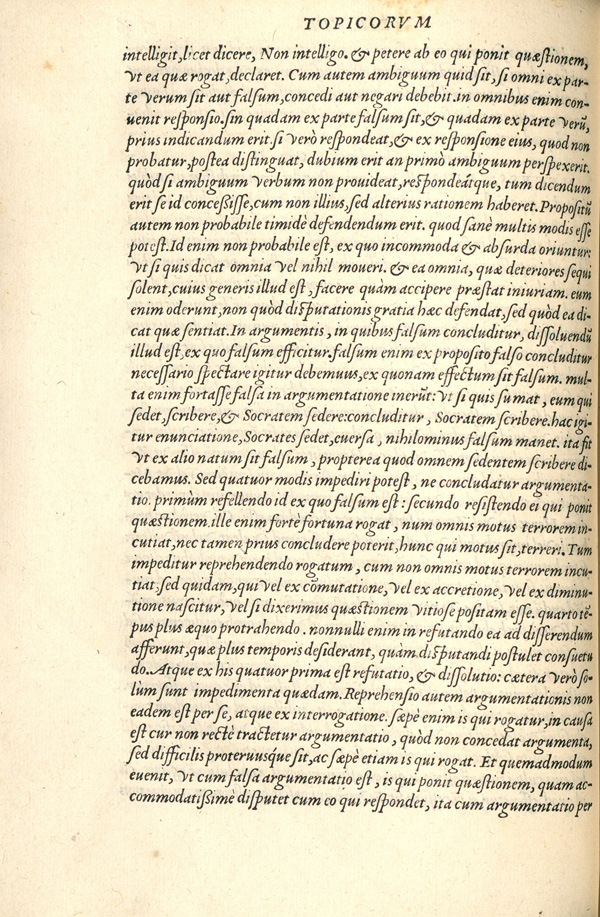 TOPICORVM
intelligit,licet dicere, Non intelligo. & petere ab eo qui ponit quæstionem,
vt ea quæ rogat,declaret. Cum autem ambiguum quid sit, si omni ex par-
te verum sit aut falsum,concedi aut negari debebit.in omnibus enim con-
uenit responsio.sin quadam ex parte falsum sit,& quadam ex parte verũ,
prius indicandum erit.si verò respondeat,& ex responsione eius, quod non
probatur,postea distinguat, dubium erit an primò ambiguum perspexerit.
quòd si ambiguum verbum non prouideat,respondeátque, tum dicendum
erit se id concessisse,cum non illius,sed alterius rationem haberet.Propositũ
autem non probabile timidè defendendum erit. quod sanè multis modis esse
potest.Id enim non probabile est, ex quo incommoda & absurda oriuntur:
vt si quis dicat omnia vel nihil moueri. & ea omnia, quæ deteriores sequi
solent,cuius generis illud est, facere quàm accipere præstat iniuriam. eum
enim oderunt,non quòd disputationis gratia hæc defendat,sed quòd ea di-
cat quæ sentiat.In argumentis, in quibus falsum concluditur, dissoluendũ
illud est,ex quo falsum efficitur.falsum enim ex proposito falso concluditur
necessario spectare igitur debemuus,ex quonam effectum sit falsum. mul-
ta enim fortasse falsa in argumentatione inerũt: vt si quis sumat, eum qui
sedet,scribere,& Socratem sedere:concluditur, Socratem scribere.hac igi-
tur enunciatione,Socrates sedet,euersa, nihilominus falsum manet. ita fit
vt ex alio natum sit falsum, propterea quod omnem sedentem scribere di-
cebamus. Sed quatuor modis impediri potest, ne concludatur argumenta-
tio. primùm refellendo id ex quo falsum est: secundo resistendo ei qui ponit
quæstionem.ille enim fortè fortuna rogat, num omnis motus terrorem in-
cutiat,nec tamen prius concludere poterit,hunc qui motus sit,terreri. Tum
impeditur reprehendendo rogatum, cum non omnis motus terrorem incu-
tiat,sed quidam,qui vel ex cõmutatione, vel ex accretione, vel ex diminu-
tione nascitur, vel si dixerimus quæstionem vitiose positam esse. quarto tẽ-
pus plus æquo protrahendo. nonnulli enim in refutando ea ad disserendum
afferunt,quæ plus temporis desiderant, quàm disputandi postulet consuetu
do.Atque ex his quatuor prima est refutatio, & dissolutio: cætera verò so-
lùm sunt impedimenta quædam.Reprehensio autem argumentationis non
eadem est per se, atque ex interrogatione. sæpè enim is qui rogatur,in causa
est cur non rectè tractetur argumentatio, quòd non concedat argumenta,
sed difficilis proteruusq́ue sit,ac sæpè etiam is qui rogat. Et quemadmodum
euenit, vt cum falsa argumentatio est, is qui ponit quæstionem, quam ac-
commodatissimè disputet cum eo qui respondet, ita cum argumentatio per